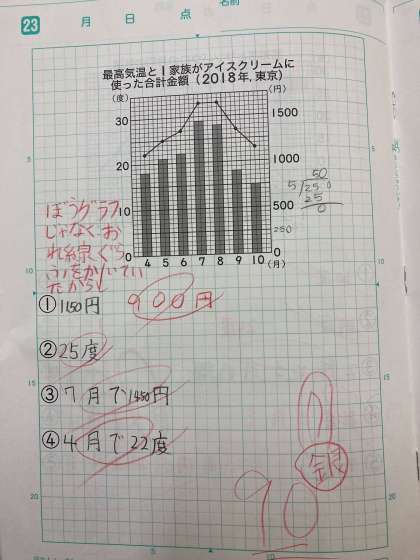 名前
23 月 日 点
最高気温と1家族がアイスクリームに
使った合計金額(2018年,東京)
(度) (円)
30 1500
20 1000
10 500
250
0 0
4 5 6 7 8 9 10 (月)
50
5 250
25
0
ぼうグラフ
じゃなくお
れ線ぐら
ふをかいてい
たから
① 1150円 900円
② 25度
③ 7月で1450円
④ 4月で22度
銀
90
5
10
15
20